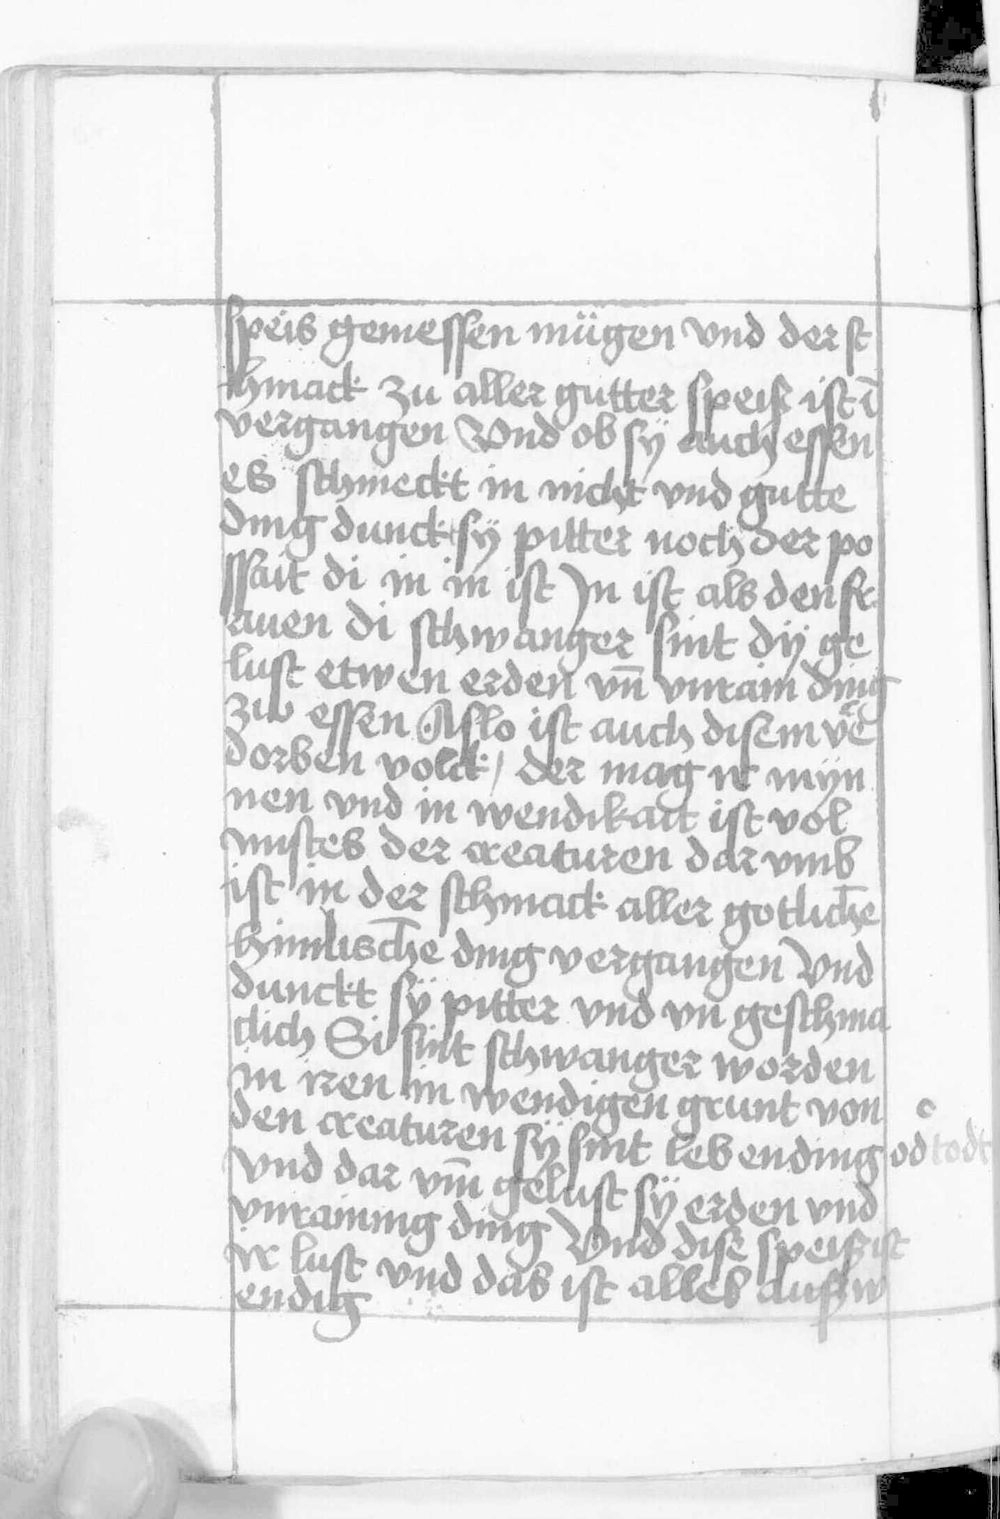 speis geniessen mügen vnd der sc
hmack zu aller gutter speise ist ī
vergangen Vnd ob sÿ auch essen
es schmeckt in nicht vnd gutte
ding dunckt sÿ pitter noch der po
ssait di in in ist Jn ist als den fr
auen di schwanger sint dÿ ge
lust etwen erden vn̄ vnrain ding
zw essen Aslo ist auch disem v̄e
dorben volck / der mag ir mÿn
nen vnd in wendikait ist vol
mistes der creaturen dar vmb
ist in der schmack aller gotlich̄e
himlisch̄e ding vergangen Vnd
dunckt sÿ pitter vnd vn geschma
clich Si sint schwanger worden
in iren in wendigen grunt von
den creaturen sÿ sint lebending od todt
vnd dar vm̄ gelust sÿ erden vnd
vnraining ding Vnd dise speisz ist
ir lust vnd das ist alles ausz w
endig